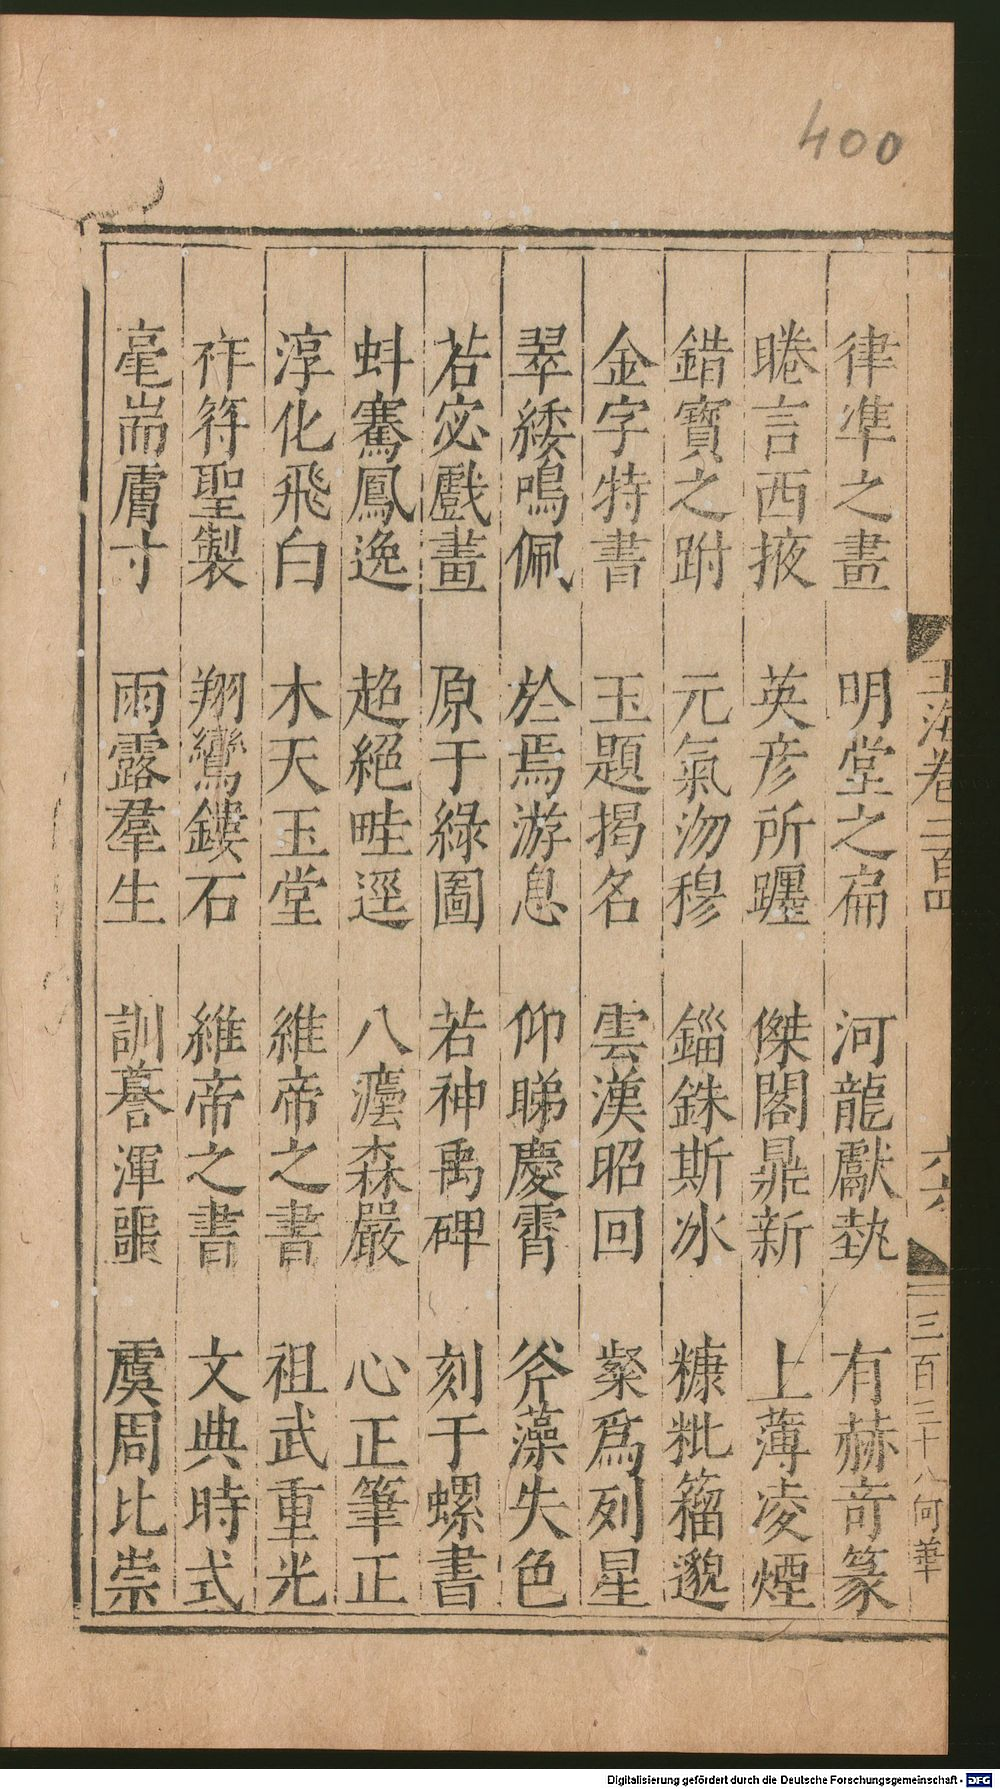 400
玉海卷二百四
六
三百三十八何華
律準之畫 明堂之扁 河龍獻埶 有赫奇篆
睠言西掖 英彦所躔 傑閣鼎新 上薄凌煙
錯寶之跗 元氣沕穆 錙銖斯冰 糠粃籀邈
金字特書 玉題揭名 雲漢昭回 粲爲列星
翠緌鳴佩 於焉游息 仰睇慶霄 斧藻失色
若宓戲畫 原于綠圖 若神禹碑 刻于螺書
蚪騫鳳逸 超絕畦逕 八灋森嚴 心正筆正
淳化飛白 木天玉堂 維帝之書 祖武重光
祚符聖製 翔鸞鏤石 維帝之書 文典時式
毫耑膚寸 雨露羣生 訓謩渾噩 虞周比崇
Digitalisierung gefördert durch die Deutsche Forschungsgemeinschaft - DFG